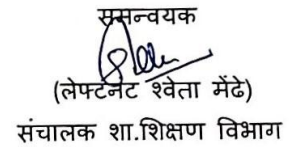 समन्वयक
(लेफ्टनेंट श्वेता मेंढे)
संचालक शा.शिक्षण विभाग